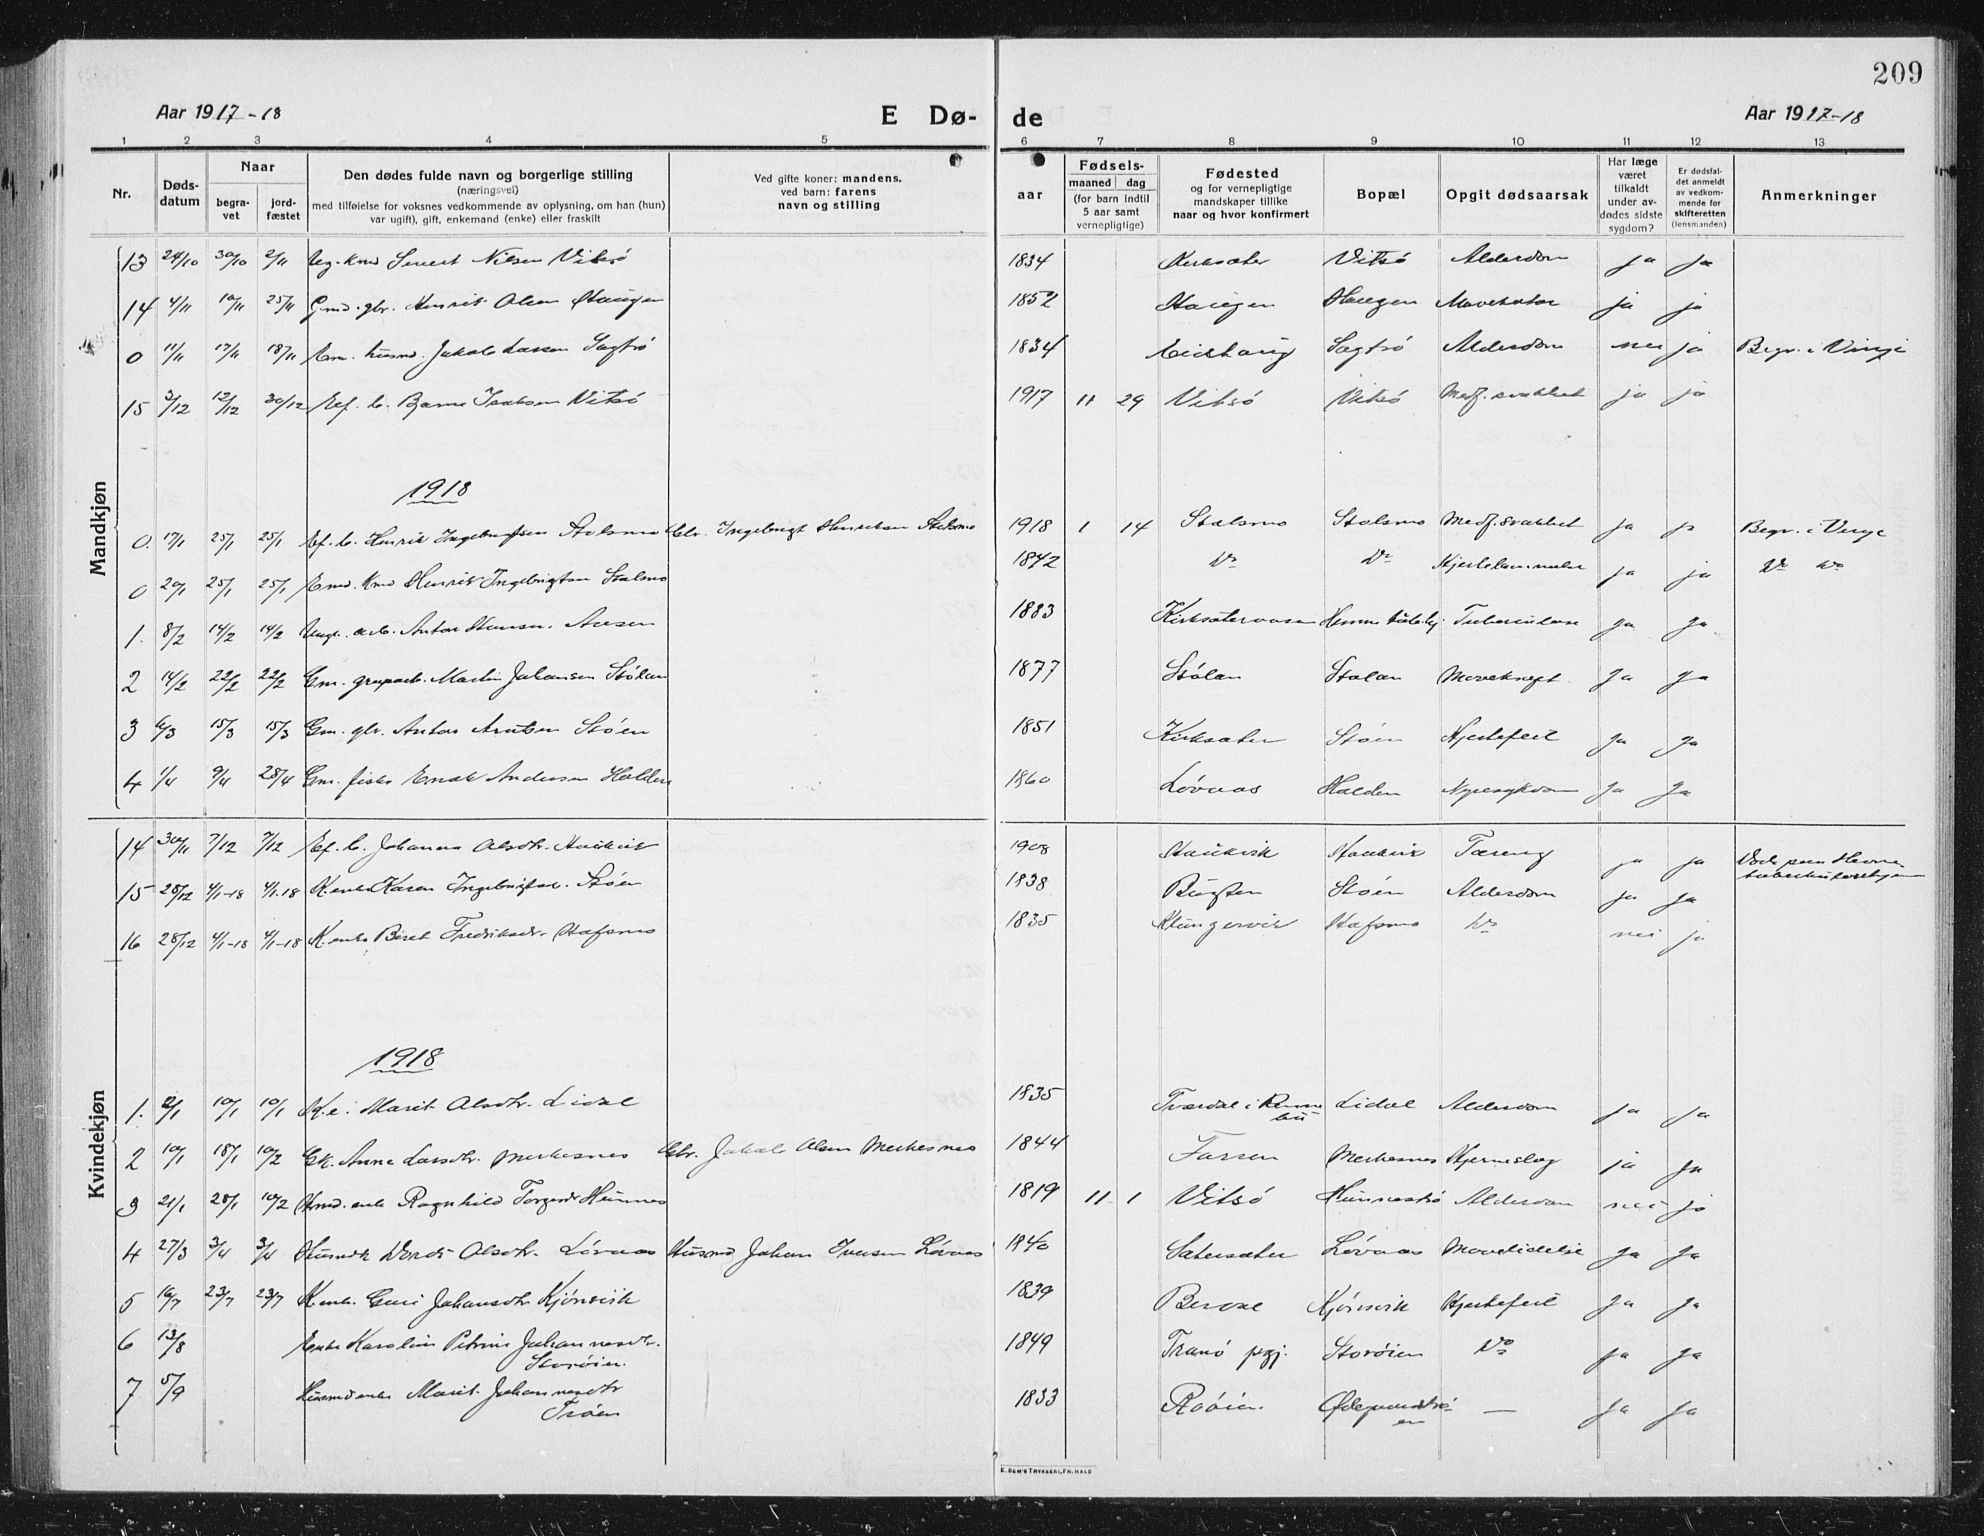 209
Aar 1917-18 E Dø- de Aar 1917-18
1 2 3 4 5 6 7 8 9 10 11 12 13
Nr.
Døds-
datum
Naar
begra-
vet
jord-
fæstet
Den dødes fulde navn og borgerlige stilling
(næringsvei)
med tilføielse for voksnes vedkommende av oplysning, om han (hun)
var ugift), gift, enkemand (enke) eller fraskilt
Ved gifte koner: mandens,
ved barn: farens
navn og stilling
aar
Fødsels-
maaned dag
(for barn indtil
5 aar samt
vernepligtige)
Fødested
og for vernepligtige
mandskaper tillike
naar og hvor konfirmert
Bopæl
Opgit dødsaarsak
Har læge
været
tilkaldt
under av-
dødes sidste
sygdom?
Er dødsfal-
det anmeldt
av vedkom-
mende for
skifteretten
(lensmanden)
Anmerkninger
Mandkjøn
13 24/10 30/10 2/11 Sivert Nilsen Vitsø 1834 Kirksæter Vitsø Alderdom ja ja
14 4/11 10/11 25/11 Gmd. gbr. Henrik Olsen Haugen 1852 Haugen Haugen ja ja
0 11/11 17/11 18/11 Em. husmd. Jakob Larsen Sagtrø 1834 Eidshaug Sagtrø Alderdom nei ja Begr. i Vinje
15 3/12 12/12 30/12 Ef. b. Barne Isaksen Vitsø 1917 11 29 Vitsø Vitsø Medf. svakhet ja ja
1918
0. 17/1 25/1 25/1 Ef. b. Henrik Ingebrigtsen Stolsmo Gbr. Ingebrigt Henriksen Stolsmo 1918 1 14 Stolsmo Stolsmo Medf. svakhet ja ja Begr. i Vinje
0 20/1 25/1 25/1 Emd. Kmd Henrik Ingebrigtsen Stolsmo 1842 Do Do Hjertelammelse ja ja Do Do
1. 8/2 14/2 14/2 Ungk. arb. Anton Hansen 1883 Kirksæterøren Hemne Tuberkulose ja ja
2 14/2 22/2 22/2 Gm. grubearb. Martin Johansen Stølan 1877 Stølan Stølan Mavekræft ja ja
3 6/3 15/3 15/3 Gm. gbr. Anton Arntsen Støen 1851 Kirksæter Støen Hjertefeil ja ja
4 1/4 9/4 28/4 Gm. fisker Andersen Halden 1860 Løvaas Halden Nyresykdom ja ja
Kvindekjøn
14 30/11 7/12 7/12 Ef. b. Johanna Olsdtr. Haukvik 1908 Haukvik Haukvik Tæring ja ja
15 28/12 4/1-18 4/1-18 K. enke Karen Ingebrigtsd. Støen 1838 Bugten Støen Alderdom ja ja
16 28/12 4/1-18 4/1-18 K. enke Beret Fredriksdr. Hafsmo 1835 Klungervik Hafsmo Do nei ja
1918
1. 2/1 10/1 10/1 K. e. Marit Olsdtr. Lidal 1835 Tværdal i Rennebu Lidal Alderdom ja ja
2 10/1 18/1 10/2 Gk. Anne Larsdtr. Merkesnes Gbr. Jakob Olsen Merkesnes 1844 Farsen Merkesnes Hjerneslag ja ja
3 21/1 28/1 10/2 Hmd. enke Ragnhild Hunnes 1819 11 1 Vitsø Alderdom nei ja
4 27/3 3/4 3/4 Husmk. Dordi Olsdtr. Løvaas Husmd Johan Iversen Løvaas 1840 Sætersæter Løvaas Mavelidelse ja ja
5 16/7 23/7 23/7 K. enke Guri Johansdtr Kjønsvik 1839 Berdal Kjønsvik Hjertefeil ja ja
6 13/8 Enke Karoline Petrine Johannesdtr.
Storøien. 1849 Tranø pgj. Storøien Do ja ja
7 5/9 Husmdenke Marit Johannesdtr
Trøen 1833 Røøien. — ja ja
E. SEM'S TRYKKERI, FR.HALD